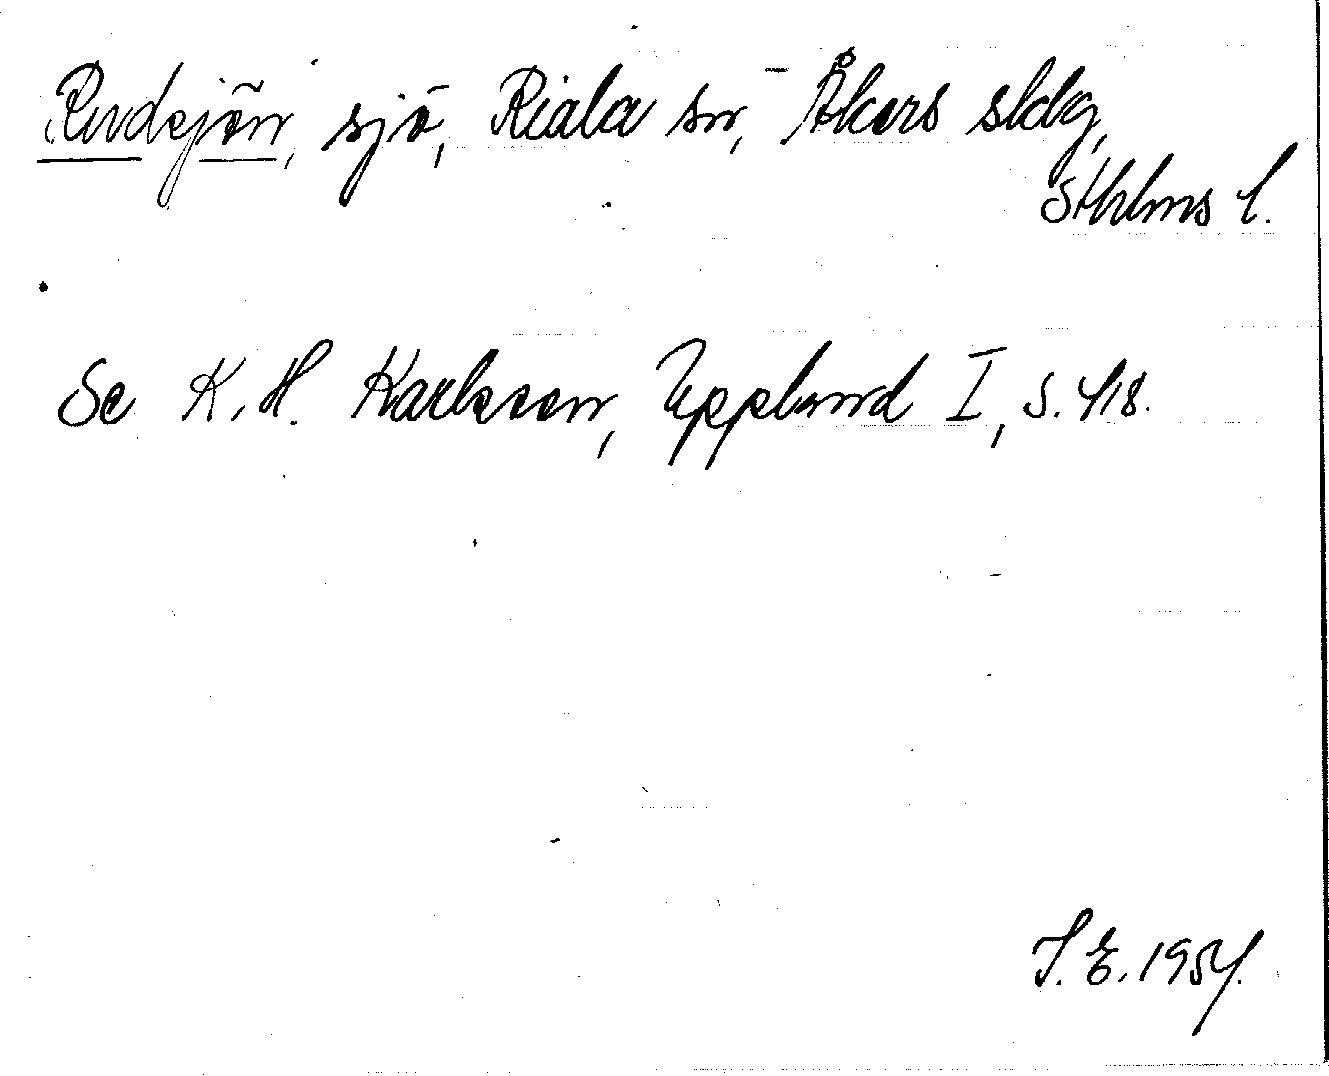 Rudsjön, sjö, Riala sn, Åkers skdg,
Sthlms l.
Se K. H. Karlsson, Uppland I, s. 418.
J. E. 1954.